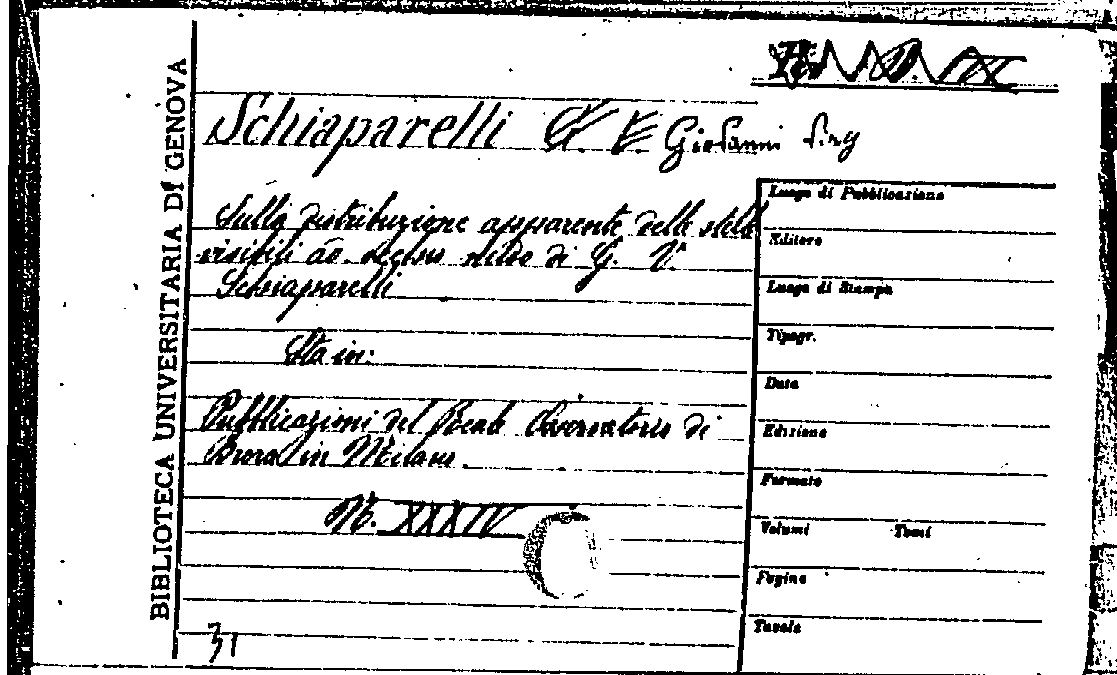 BIBLIOTECA UNIVERSITARIA DI GENOVA
Schiaparelli G. V. Giovanni
Sulla distribuzione apparente delle stelle
visibili ad occhio nudo di G. V.
Schiaparelli
Sta in:
Pubblicazioni del Reale Osservatorio di
Brera in Milano.
N. XXXIV
31
Luogo di Pubblicazione
Editore
Luogo di Stampa
Tipogr.
Data
Edizione
Formato
Volumi Tomi
Pagine
Tavole